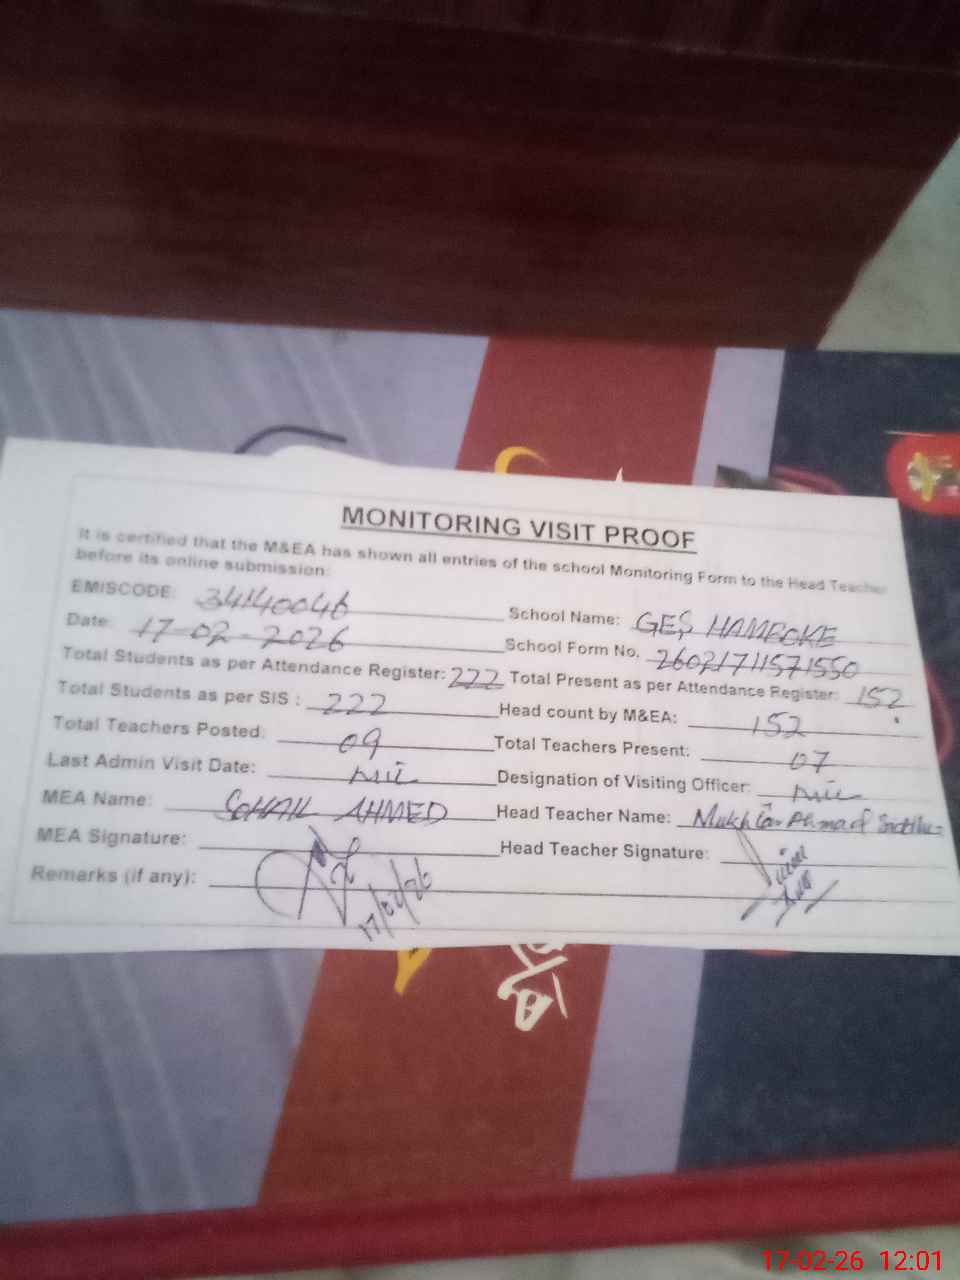 MONITORING VISIT PROOF
It is certified that the M&EA has shown all entries of the school Monitoring Form to the Head Teacher
before its online submission:
EMISCODE: 34140046 School Name: GES HAMBOKE
Date: 17-02-2026 School Form No. 26021711571550
Total Students as per Attendance Register: 222 Total Present as per Attendance Register: 152
Total Students as per SIS : 222 Head count by M&EA: 152
Total Teachers Posted: 09 Total Teachers Present: 07
Last Admin Visit Date: Nil Designation of Visiting Officer: Nil
MEA Name: SOHAIL AHMED Head Teacher Name: Mukhtar Ahmad
MEA Signature: Head Teacher Signature:
Remarks (if any): 17/02/26
17-02-26 12:01